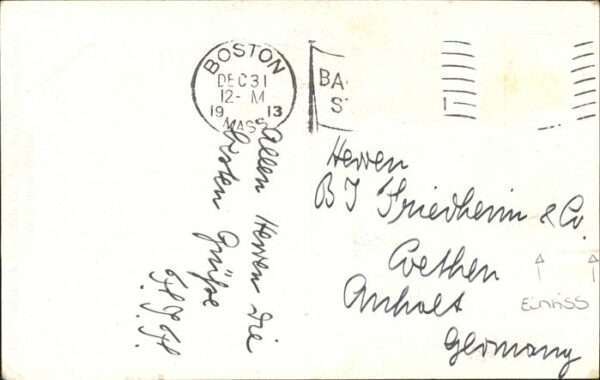 BOSTON
DEC 31
12- M
19 13
MASS
BA
ST
1
Allen Herren die
besten Grüße
Herren
B J Friedheim & Co.
Coethen
Anhalt
Germany
Einriss